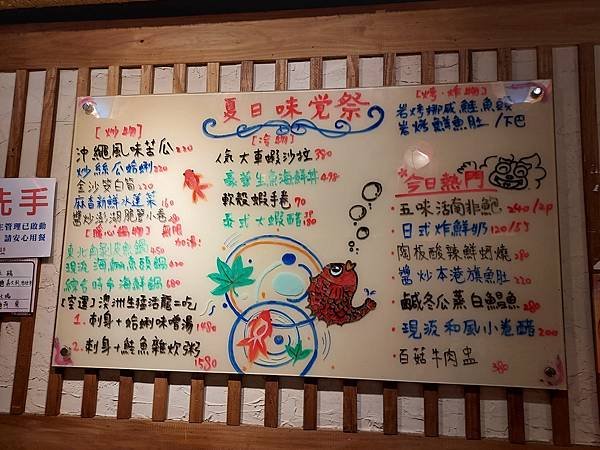 夏日味覚祭
[炒物]
沖繩風味苦瓜 220
炒絲瓜蛤蜊 220
金沙筊白筍 220
麻香新鮮水蓮菜 160
醬炒澎湖脆薯小卷 280
[暖心鍋物]
加湯:
東北角剝皮魚鍋 450
現流海鱺魚頭鍋 420
綜合時令海鮮鍋 680
[空運]澳洲生猛活龍二吃
1. 刺身+蛤蜊味噌湯 1480
2. 刺身+鮭魚雜炊粥 1580
[冷物]
人氣大車蝦沙拉 380
豪華生魚海鮮丼 498
軟殼蝦手卷 70
泰式大蝦醋 180
[烤.炸物]
岩烤挪威鮭魚頭
岩烤鮮魚肚/下巴
今日熱門
·五味活南非鮑 240/2P
·日式炸鮮奶 120/5P
·陶板酸辣鮮蚵燒 280
·醬炒本港旗魚肚 220
·鹹冬瓜蒸白鯧魚 280
·現流和風小卷醋 200
·百菇牛肉盅 380
洗手
管理已啟動
請安心用餐